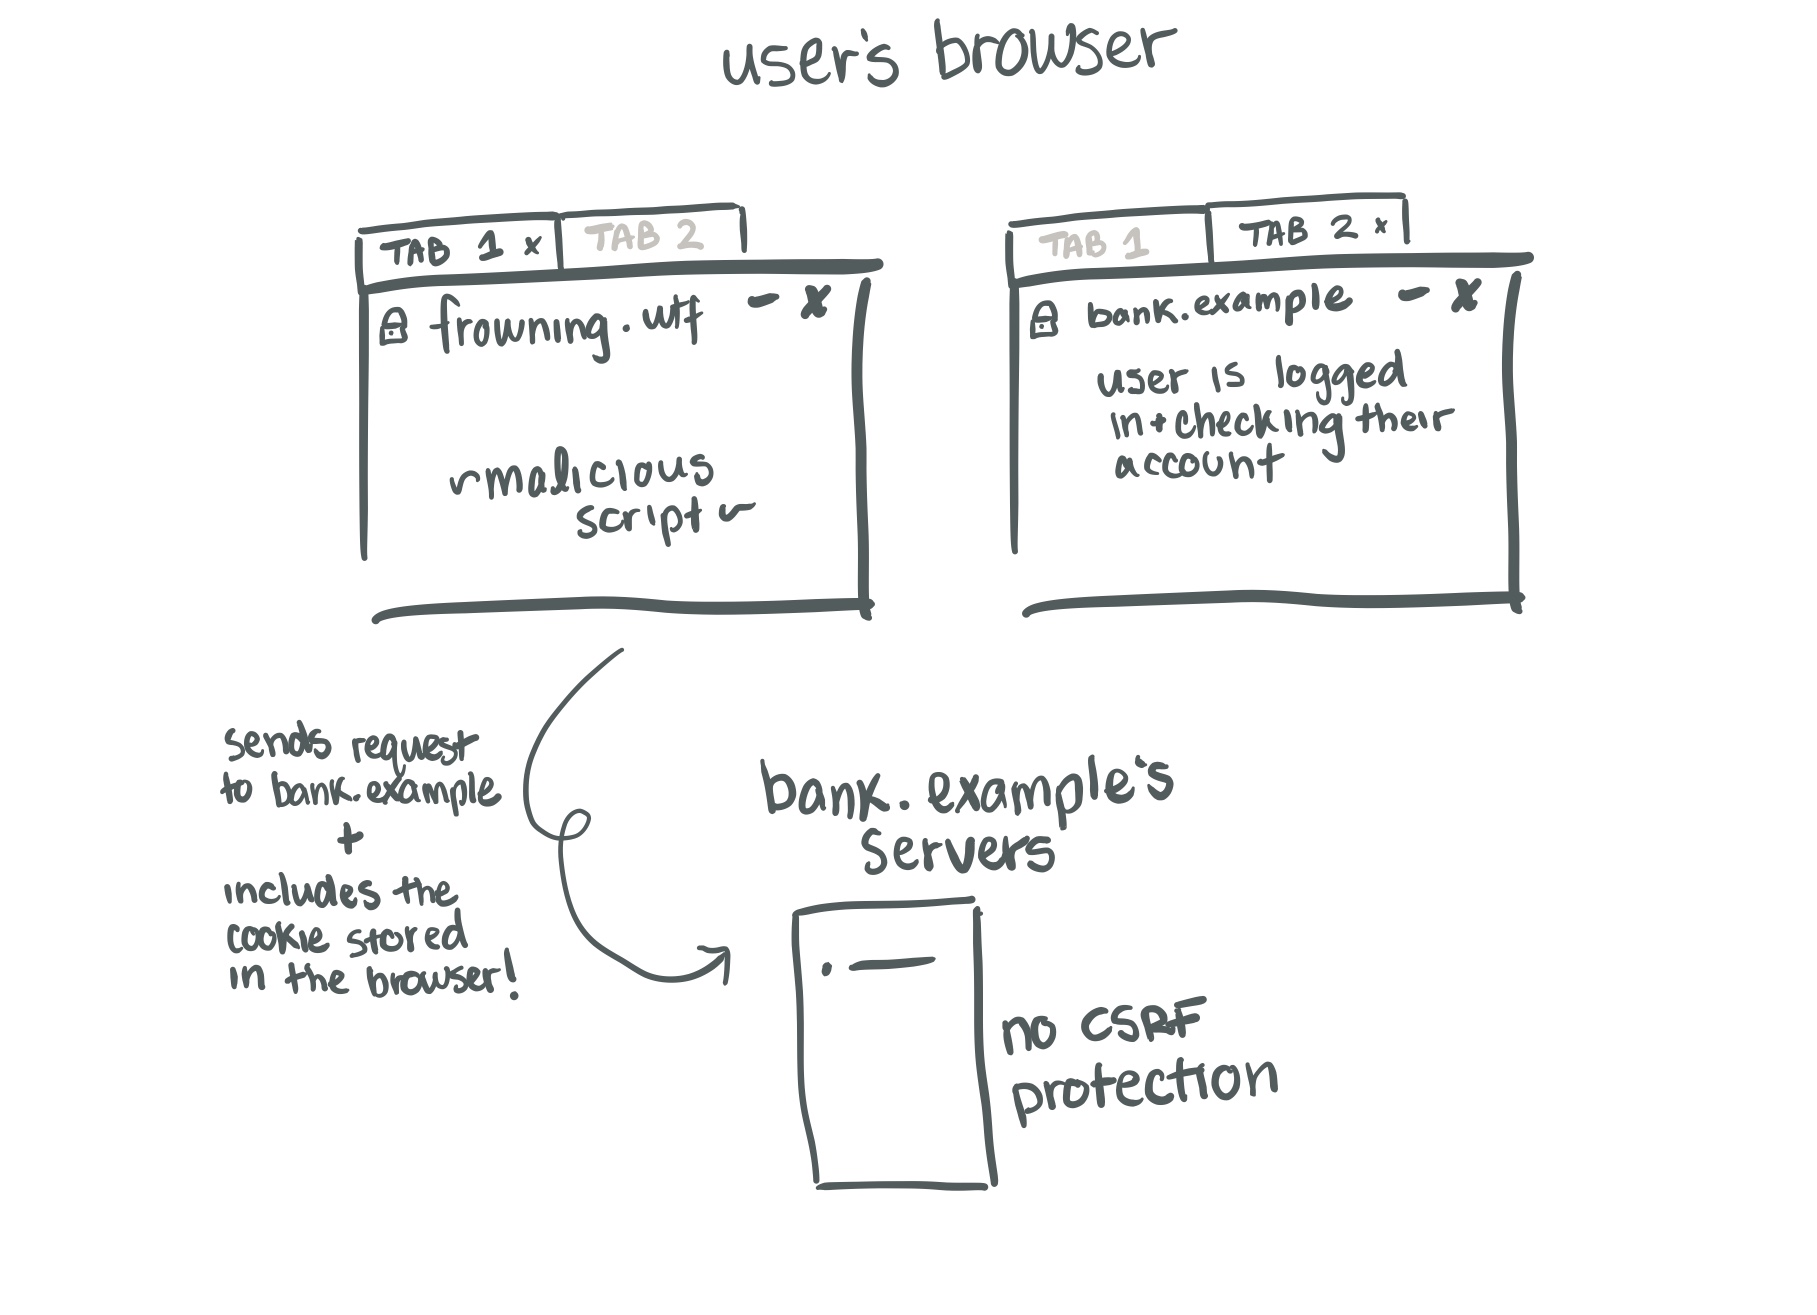 user's browser
TAB 1 x TAB 2
frowning.wtf - x
~malicious
script~
TAB 1 TAB 2 x
bank.example - x
user is logged
in + checking their
account
sends request
to bank.example
+
includes the
cookie stored
in the browser!
bank.example's
servers
no CSRF
protection